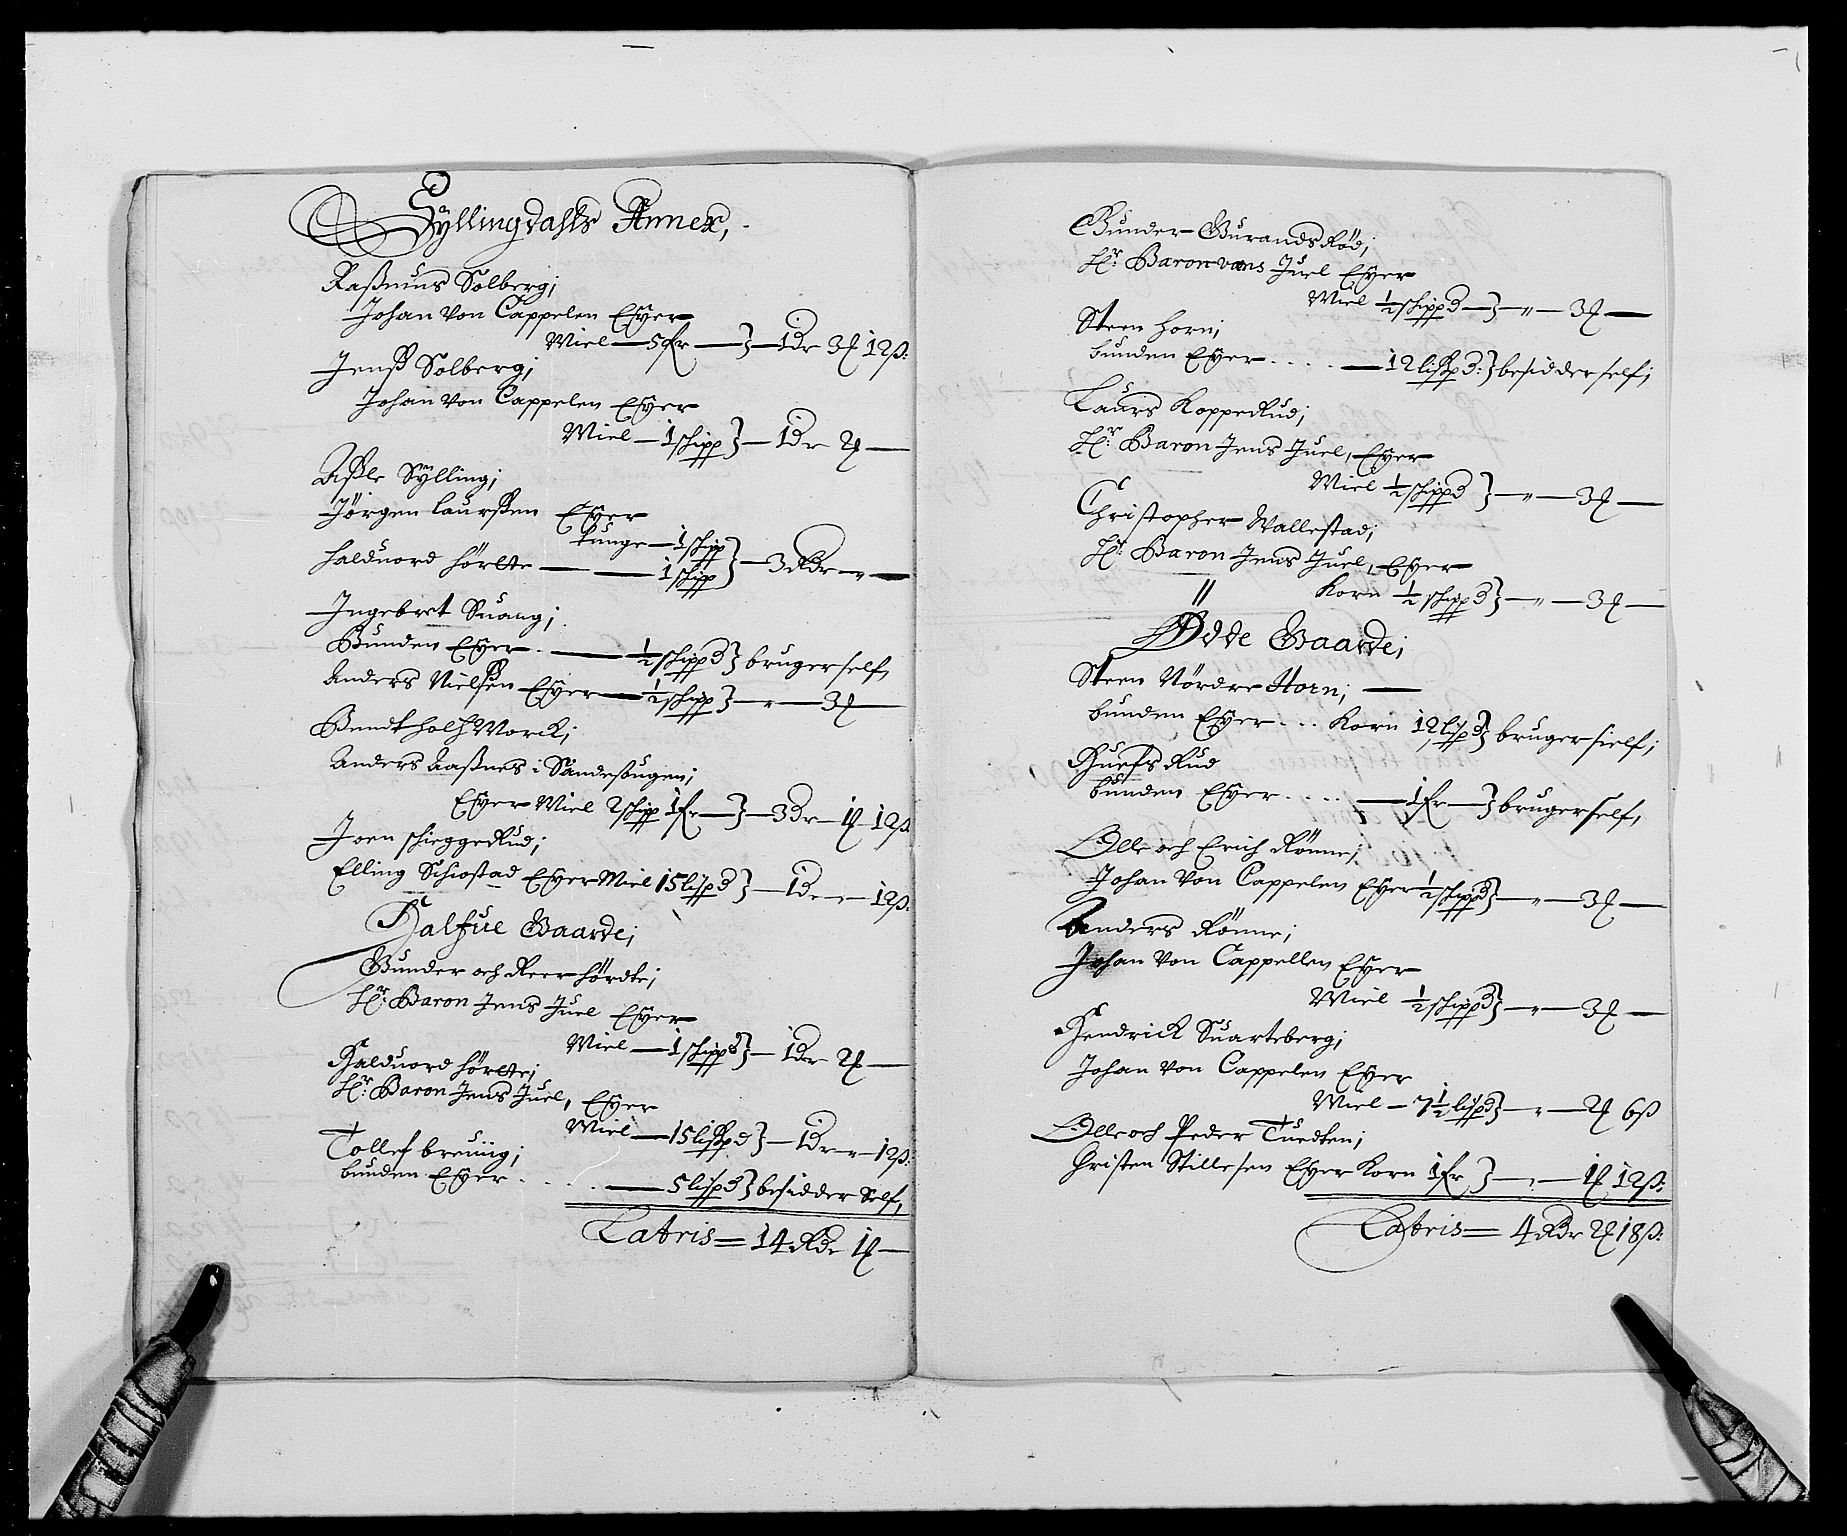 Syllingdahls Annex,
Raßmus Solberg;
Johan von Cappelen Eyer
Miel — 5 fr — } — 1 dr 3 ȣ 12 ß:
Jenß Solberg;
Johan von Cappelen Eyer
Miel — 1 schipp } — 1 dr 2 ȣ —
Aßle Sylling;
Jörgen Laurßen Eyer
Tunge — 1 schipp
Halduord hörtte — — 1 schipp } — 3 Rdr — „ —
Ingebret Suang;
Bunden Eyer. — ½ schippd } bruger self,
Anders Nielßen Eyer — ½ schipp } — „ — 3 ȣ —
Bendt holh Morck;
Anders Aaßnes i Sandesougen;
Eyer Miel 2 schipp 1 fr — } — 3 Dr — 1 ȣ 12 ß.
Joen schieggeRud;
Elling Schiostad Eyer Miel 15 lispd } — 1 dr „ — 12 ß:
Halfue Gaarde;
Gunder och Reer hördte;
Hr: Baron Jens Juel Eyer
Miel — 1 schippd } — 1 dr 2 ȣ —
Halduord hörtte;
Hr: Baron Jens Juel, Eyer
Miel — 15 lispd } — 1 dr „ — 12 ß:
Tollef breüig;
bunden Eyer . . . . — 5 lispd } besidder Self,
Latris = 14 Rdr 1 ȣ —
Gunder GurandsRöd;
Hr: Baron vans Juel Eyer
Miel ½ schippd — } — „ — 3 ȣ —
Steen horn;
bunden Eyer . . . . — 12 lispd: } besidder self;
Laurs KoppeRud;
Hr: Baron Jens Juel, Eyer
Miel ½ schippd } — „ — 3 ȣ —
Christopher Vallestad;
Hr: Baron Jens Juel, Eyer
Korn ½ schippd } — „ — 3 ȣ —
Ödde Gaarde;
Steen Nördre Horn; —
bunden Eyer . . . Korn 12 lispd } bruger sielf;
HuefsRud
bunden Eyer . . . . — 1 fr — } bruger self,
Olle och Erich Rönne;
Johan von Cappelen Eyer ½ schippd } — „ — 3 ȣ —
Anders Rönne;
Johan von Cappellen Eyer
Miel ½ schippd } — „ — 3 ȣ —
Hendrick Suarteberg;
Johan von Cappelen Eyer
Miel — 7½ lispd } — „ — 2 ȣ 6 ß
Olle och Peder Tuedten;
Christen Stillesen Eyer Korn 1 fr } — „ — 1 ȣ 12 ß:
Latris = 4 Rdr 2 ȣ 18 ß: